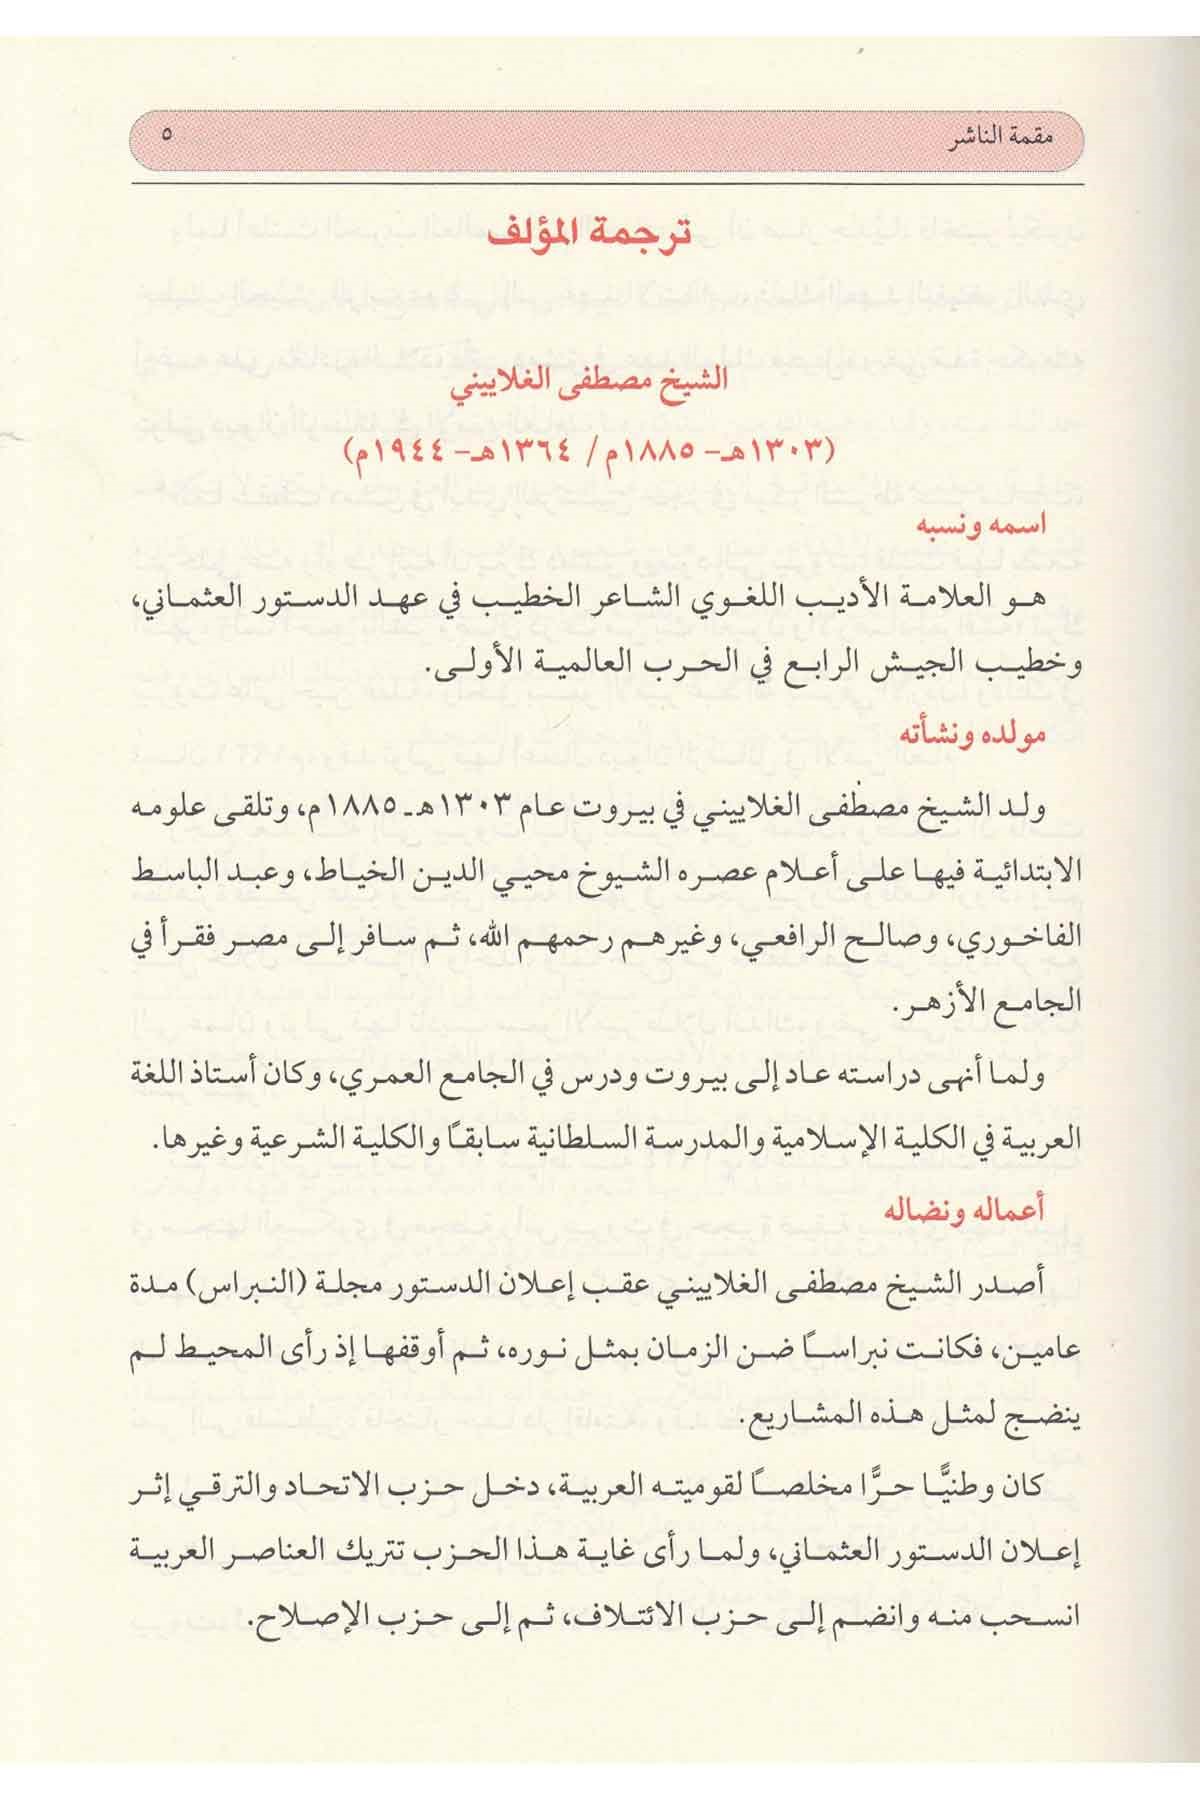 مقمة الناشر ٥
ترجمة المؤلف
الشيخ مصطفى الغلاييني
(١٣٠٣هـ - ١٨٨٥م / ١٣٦٤هـ - ١٩٤٤م)
اسمه ونسبه
هو العلامة الأديب اللغوي الشاعر الخطيب في عهد الدستور العثماني،
وخطيب الجيش الرابع في الحرب العالمية الأولى.
مولده ونشأته
ولد الشيخ مصطفى الغلاييني في بيروت عام ١٣٠٣هـ ـ ١٨٨٥م، وتلقى علومه
الابتدائية فيها على أعلام عصره الشيوخ محيي الدين الخياط، وعبد الباسط
الفاخوري، وصالح الرافعي، وغيرهم رحمهم الله، ثم سافر إلى مصر فقرأ في
الجامع الأزهر.
ولما أنهى دراسته عاد إلى بيروت ودرس في الجامع العمري، وكان أستاذ اللغة
العربية في الكلية الإسلامية والمدرسة السلطانية سابقًا والكلية الشرعية وغيرها.
أعماله ونضاله
أصدر الشيخ مصطفى الغلاييني عقب إعلان الدستور مجلة (النبراس) مدة
عامين، فكانت نبراسًا ضن الزمان بمثل نوره، ثم أوقفها إذ رأى المحيط لم
ينضج لمثل هذه المشاريع.
كان وطنيًّا حرًّا مخلصًا لقوميته العربية، دخل حزب الاتحاد والترقي إثر
إعلان الدستور العثماني، ولما رأى غاية هذا الحزب تتريك العناصر العربية
انسحب منه وانضم إلى حزب الائتلاف، ثم إلى حزب الإصلاح.